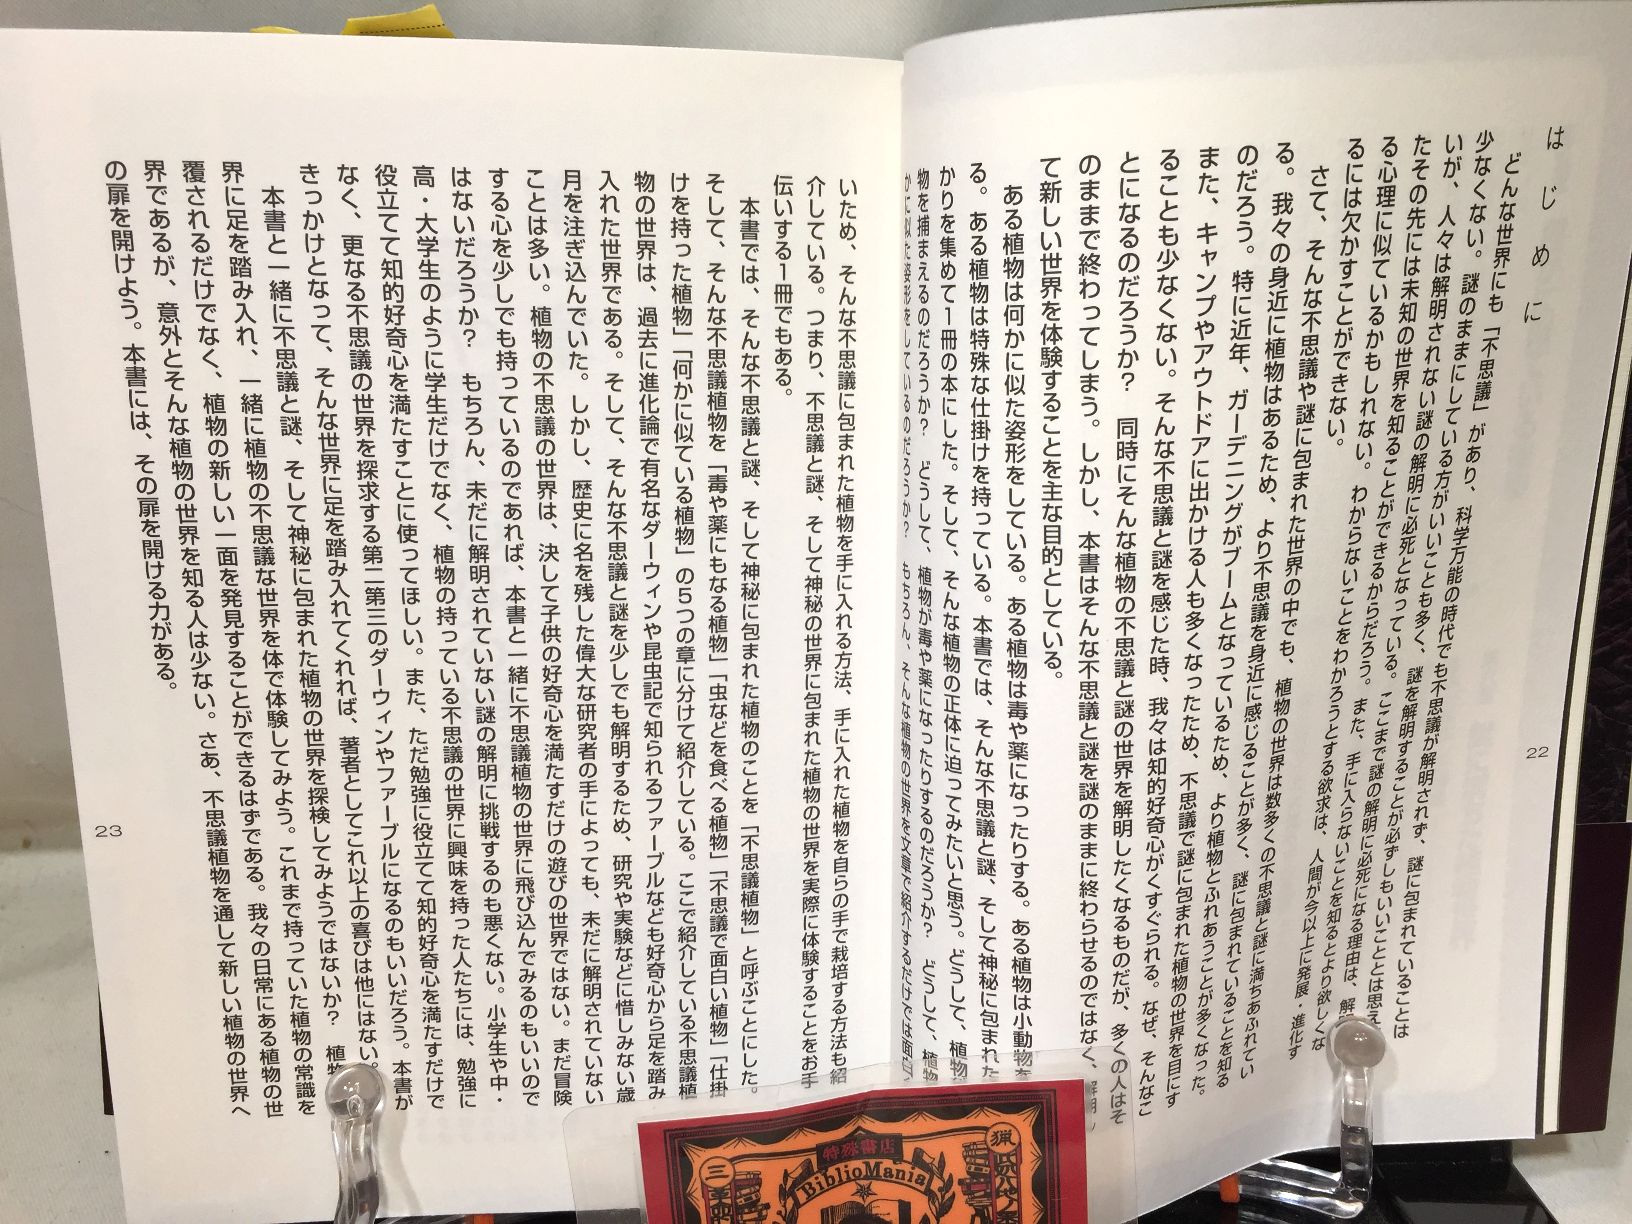 はじめに
どんな世界にも「不思議」があり、科学万能の時代でも不思議が解明されず、謎に包まれていることは
少なくない。謎のままにしている方がいいことも多く、謎を解明することが必ずしもいいこととは思え
いが、人々は解明されない謎の解明に必死となっている。ここまで謎の解明に必死になる理由は、解
たその先には未知の世界を知ることができるからだろう。また、手に入らないことを知るとより欲しくな
る心理に似ているかもしれない。わからないことをわかろうとする欲求は、人間が今以上に発展・進化す
るには欠かすことができない。
さて、そんな不思議や謎に包まれた世界の中でも、植物の世界は数多くの不思議と謎に満ちあふれてい
る。我々の身近に植物はあるため、より不思議を身近に感じることが多く、謎に包まれていることを知る
のだろう。特に近年、ガーデニングがブームとなっているため、より植物とふれあうことが多くなった。
また、キャンプやアウトドアに出かける人も多くなったため、不思議で謎に包まれた植物の世界を目にす
ることも少なくない。そんな不思議と謎を感じた時、我々は知的好奇心がくすぐられる。なぜ、そんなこ
とになるのだろうか？　同時にそんな植物の不思議と謎の世界を解明したくなるものだが、多くの人はそ
のままで終わってしまう。しかし、本書はそんな不思議と謎を謎のままに終わらせるのではなく、解明し
て新しい世界を体験することを主な目的としている。
ある植物は何かに似た姿形をしている。ある植物は毒や薬になったりする。ある植物は小動物を
る。ある植物は特殊な仕掛けを持っている。本書では、そんな不思議と謎、そして神秘に包まれた
かりを集めて1冊の本にした。そして、そんな植物の正体に迫ってみたいと思う。どうして、植物
物を捕まえるのだろうか？　どうして、植物が毒や薬になったりするのだろうか？　どうして、植物
かに似た姿形をしているのだろうか？　もちろん、そんな植物の世界を文章で紹介するだけでは面白
22
いため、そんな不思議に包まれた植物を手に入れる方法、手に入れた植物を自らの手で栽培する方法も紹
介している。つまり、不思議と謎、そして神秘の世界に包まれた植物の世界を実際に体験することをお手
伝いする1冊でもある。
本書では、そんな不思議と謎、そして神秘に包まれた植物のことを「不思議植物」と呼ぶことにした。
そして、そんな不思議植物を「毒や薬にもなる植物」「虫などを食べる植物」「不思議で面白い植物」「仕掛
けを持った植物」「何かに似ている植物」の5つの章に分けて紹介している。ここで紹介している不思議植
物の世界は、過去に進化論で有名なダーウィンや昆虫記で知られるファーブルなども好奇心から足を踏み
入れた世界である。そして、そんな不思議と謎を少しでも解明するため、研究や実験などに惜しみない歳
月を注ぎ込んでいた。しかし、歴史に名を残した偉大な研究者の手によっても、未だに解明されていない
ことは多い。植物の不思議の世界は、決して子供の好奇心を満たすだけの遊びの世界ではない。まだ冒険
する心を少しでも持っているのであれば、本書と一緒に不思議植物の世界に飛び込んでみるのもいいので
はないだろうか？　もちろん、未だに解明されていない謎の解明に挑戦するのも悪くない。小学生や中・
高・大学生のように学生だけでなく、植物の持っている不思議の世界に興味を持った人たちには、勉強に
役立てて知的好奇心を満たすことに使ってほしい。また、ただ勉強に役立てて知的好奇心を満たすだけで
なく、更なる不思議の世界を探求する第二第三のダーウィンやファーブルになるのもいいだろう。本書が
きっかけとなって、そんな世界に足を踏み入れてくれれば、著者としてこれ以上の喜びは他にはない。
本書と一緒に不思議と謎、そして神秘に包まれた植物の世界を探検してみようではないか？　植物
界に足を踏み入れ、一緒に植物の不思議な世界を体で体験してみよう。これまで持っていた植物の常識を
覆されるだけでなく、植物の新しい一面を発見することができるはずである。我々の日常にある植物の世
界であるが、意外とそんな植物の世界を知る人は少ない。さあ、不思議植物を通して新しい植物の世界へ
の扉を開けよう。本書には、その扉を開ける力がある。
23
特殊書店
BiblioMania